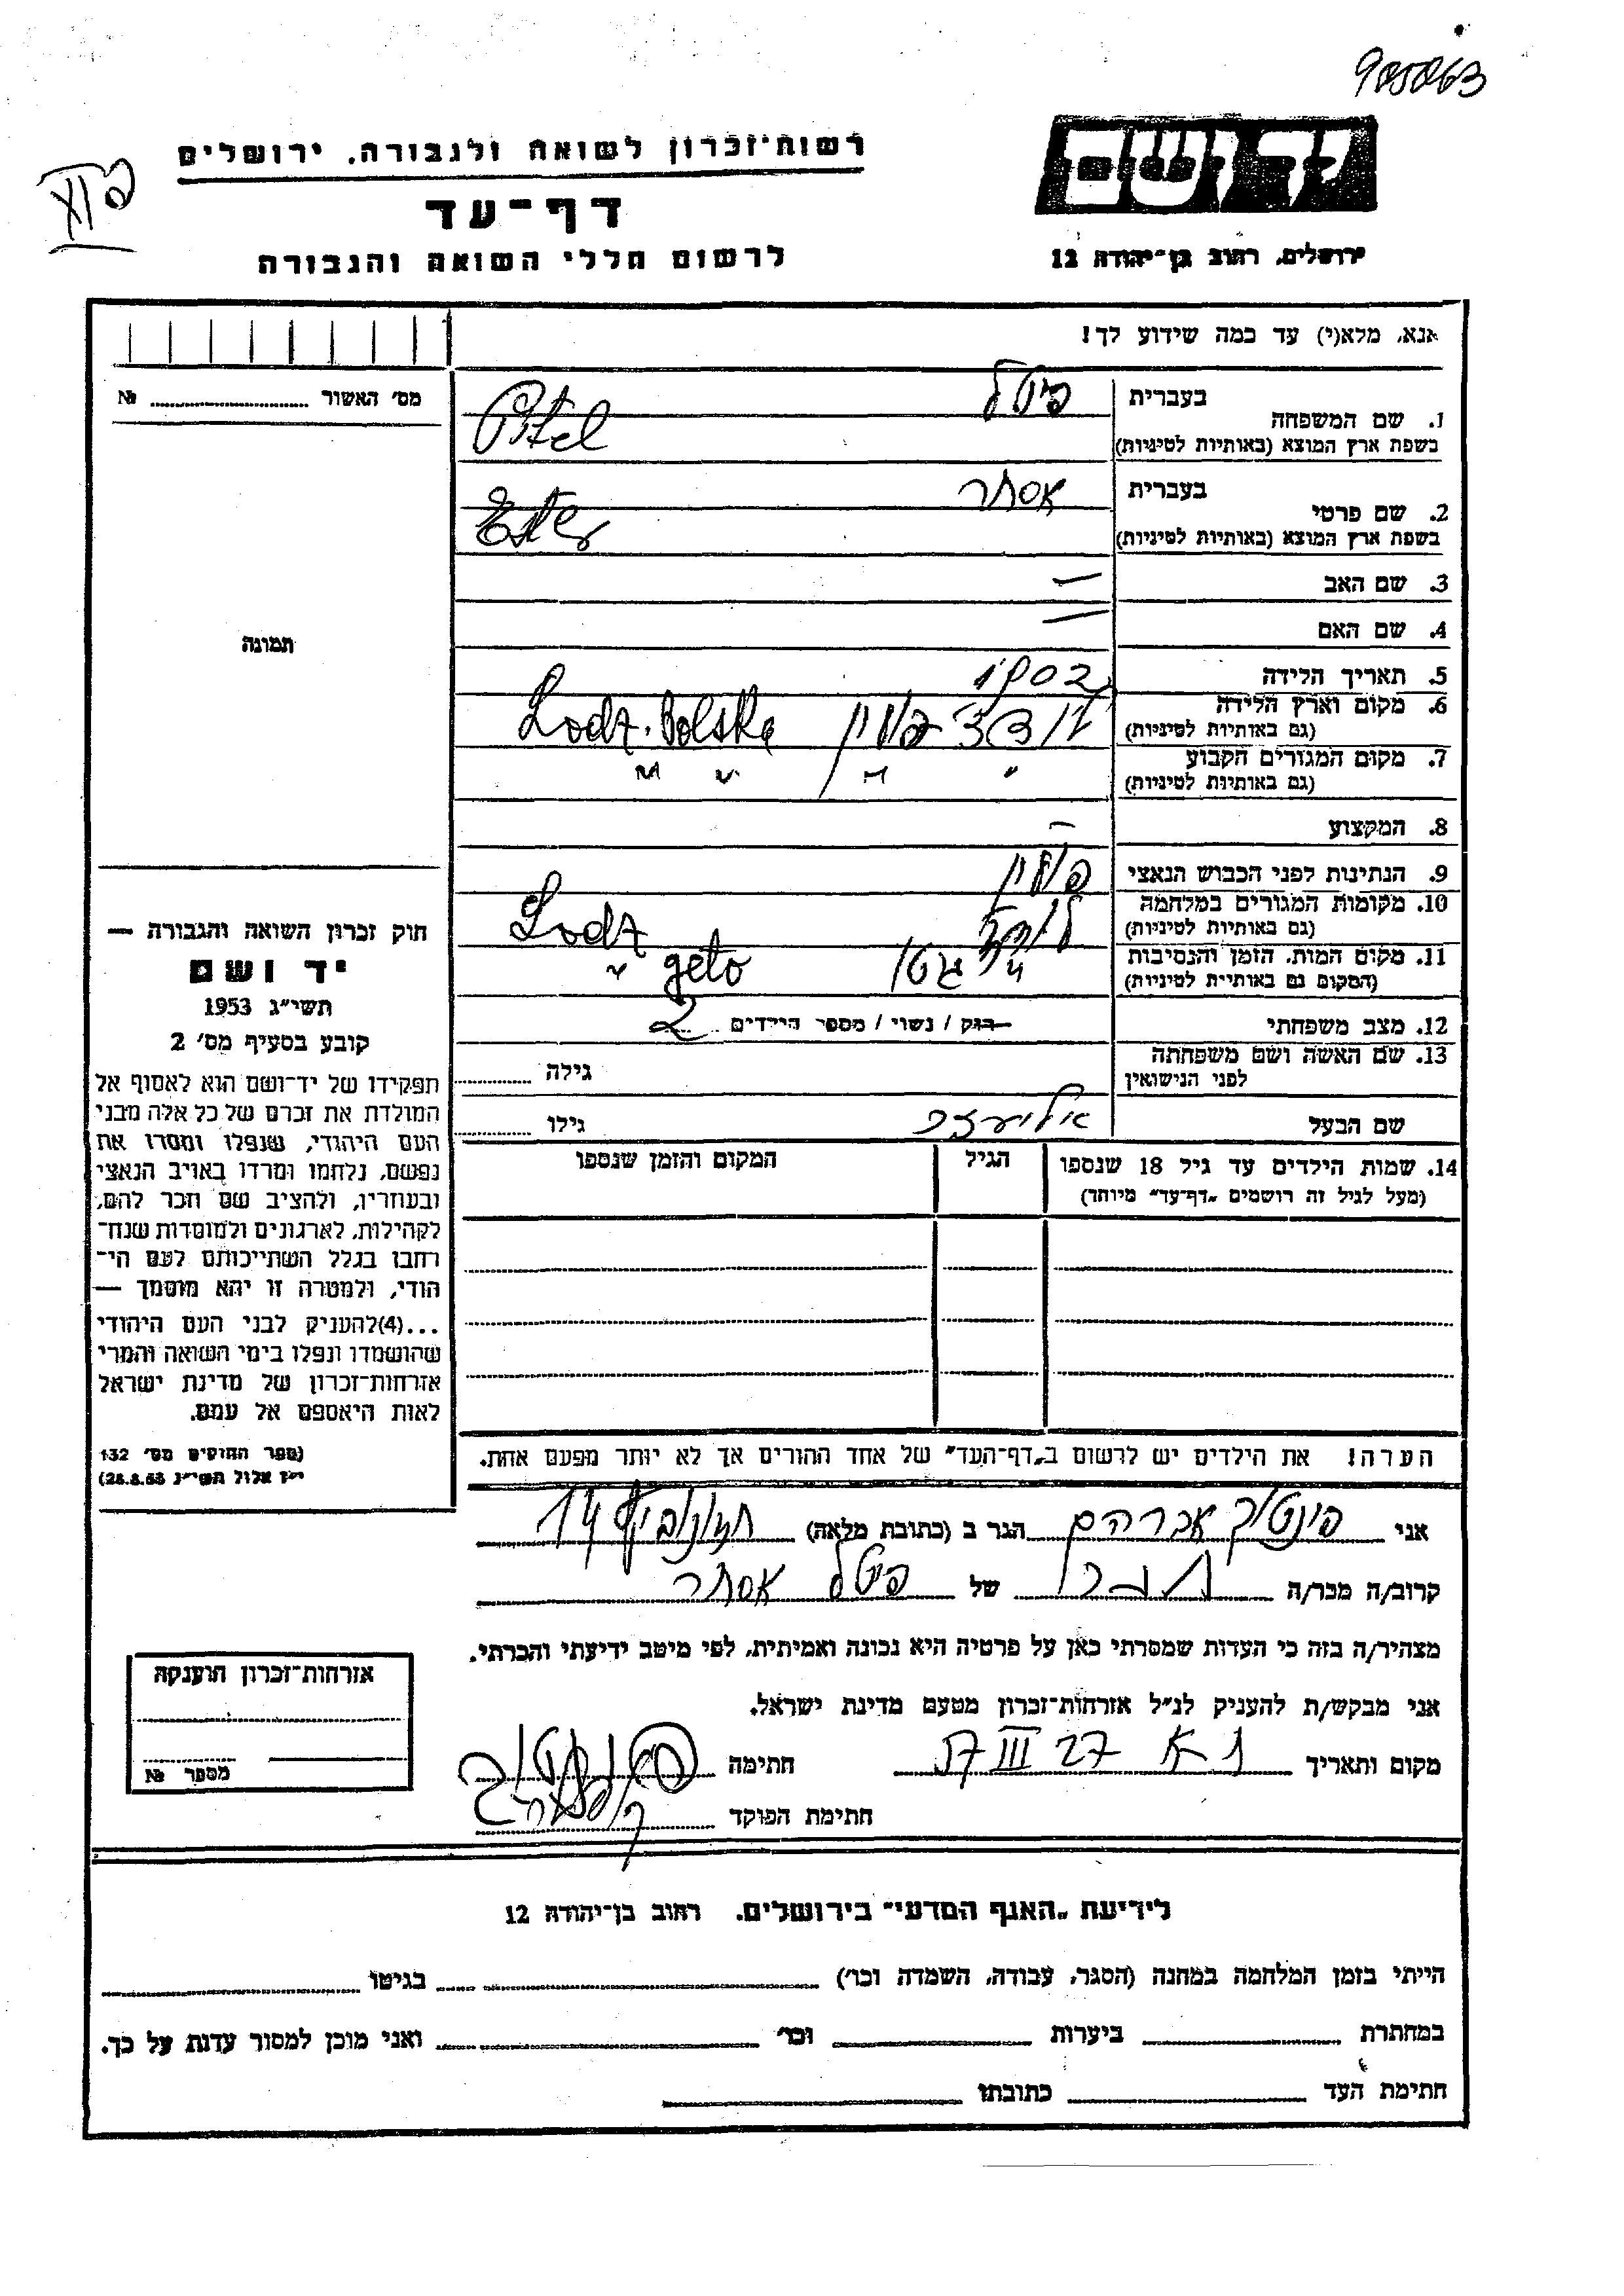 905063
רשות־זכרון לשואה ולגבורה. ירושלים
יד ושם
דף־עד
לרשום חללי השואה והגבורה
ירושלים, רחוב בן־יהודה 12
אנא, מלא(י) עד כמה שידוע לך!
מס׳ האשור №
1. שם המשפחה
בעברית פיטל
בשפת ארץ המוצא (באותיות לטיניות) Pitel
2. שם פרטי
בעברית אסתר
בשפת ארץ המוצא (באותיות לטיניות) Ester
3. שם האב —
4. שם האם —
תמונה
5. תאריך הלידה 1902
6. מקום וארץ הלידה
(גם באותיות לטיניות) לודז׳ פולין Lodz. Polska
7. מקום המגורים הקבוע
(גם באותיות לטיניות) " " " "
8. המקצוע —
9. הנתינות לפני הכבוש הנאצי פולין
10. מקומות המגורים במלחמה
(גם באותיות לטיניות) לודז׳ Lodz
11. מקום המות, הזמן והנסיבות
(המקום גם באותיות לטיניות) " גטו " geto
12. מצב משפחתי רוק / נשוי / מספר הילדים 2
13. שם האשה ושם משפחתה
לפני הנישואין גילה
שם הבעל אליעזר גילו
14. שמות הילדים עד גיל 18 שנספו
(מעל לגיל זה רושמים „דף־עד״ מיוחד)
הגיל
המקום והזמן שנספו
הערה! את הילדים יש לרשום ב„דף־העד״ של אחד ההורים אך לא יותר מפעם אחת.
חוק זכרון השואה והגבורה —
יד ושם
תשי״ג 1953
קובע בסעיף מס׳ 2
תפקידו של יד־ושם הוא לאסוף אל
המולדת את זכרם של כל אלה מבני
העם היהודי, שנפלו ומסרו את
נפשם, נלחמו ומרדו באויב הנאצי
ובעוזריו, ולהציב שם וזכר להם,
לקהילות, לארגונים ולמוסדות שנח־
רבו בגלל השתייכותם לעם הי־
הודי, ולמטרה זו יהא מוסמך —
...(4)להעניק לבני העם היהודי
שהושמדו ונפלו בימי השואה והמרי
אזרחות־זכרון של מדינת ישראל
לאות היאספם אל עמם.
(ספר החוקים מס׳ 132
י״ז אלול תשי״ג 28.8.53)
אני אברהם הגר ב (כתובת מלאה) 14
קרוב/ה מכר/ה חבר של פיטל אסתר
מצהיר/ה בזה כי העדות שמסרתי כאן על פרטיה היא נכונה ואמיתית, לפי מיטב ידיעתי והכרתי.
אני מבקש/ת להעניק לנ״ל אזרחות־זכרון מטעם מדינת ישראל.
מקום ותאריך 27 III 57 חתימה
חתימת הפוקד
אזרחות־זכרון הוענקה
מספר №
לידיעת „האגף המדעי״ בירושלים. רחוב בן־יהודה 12
הייתי בזמן המלחמה במחנה (הסגר, עבודה, השמדה וכו׳) בגיטו
במחתרת ביערות וכו׳ ואני מוכן למסור עדות על כך.
חתימת העד כתובתו